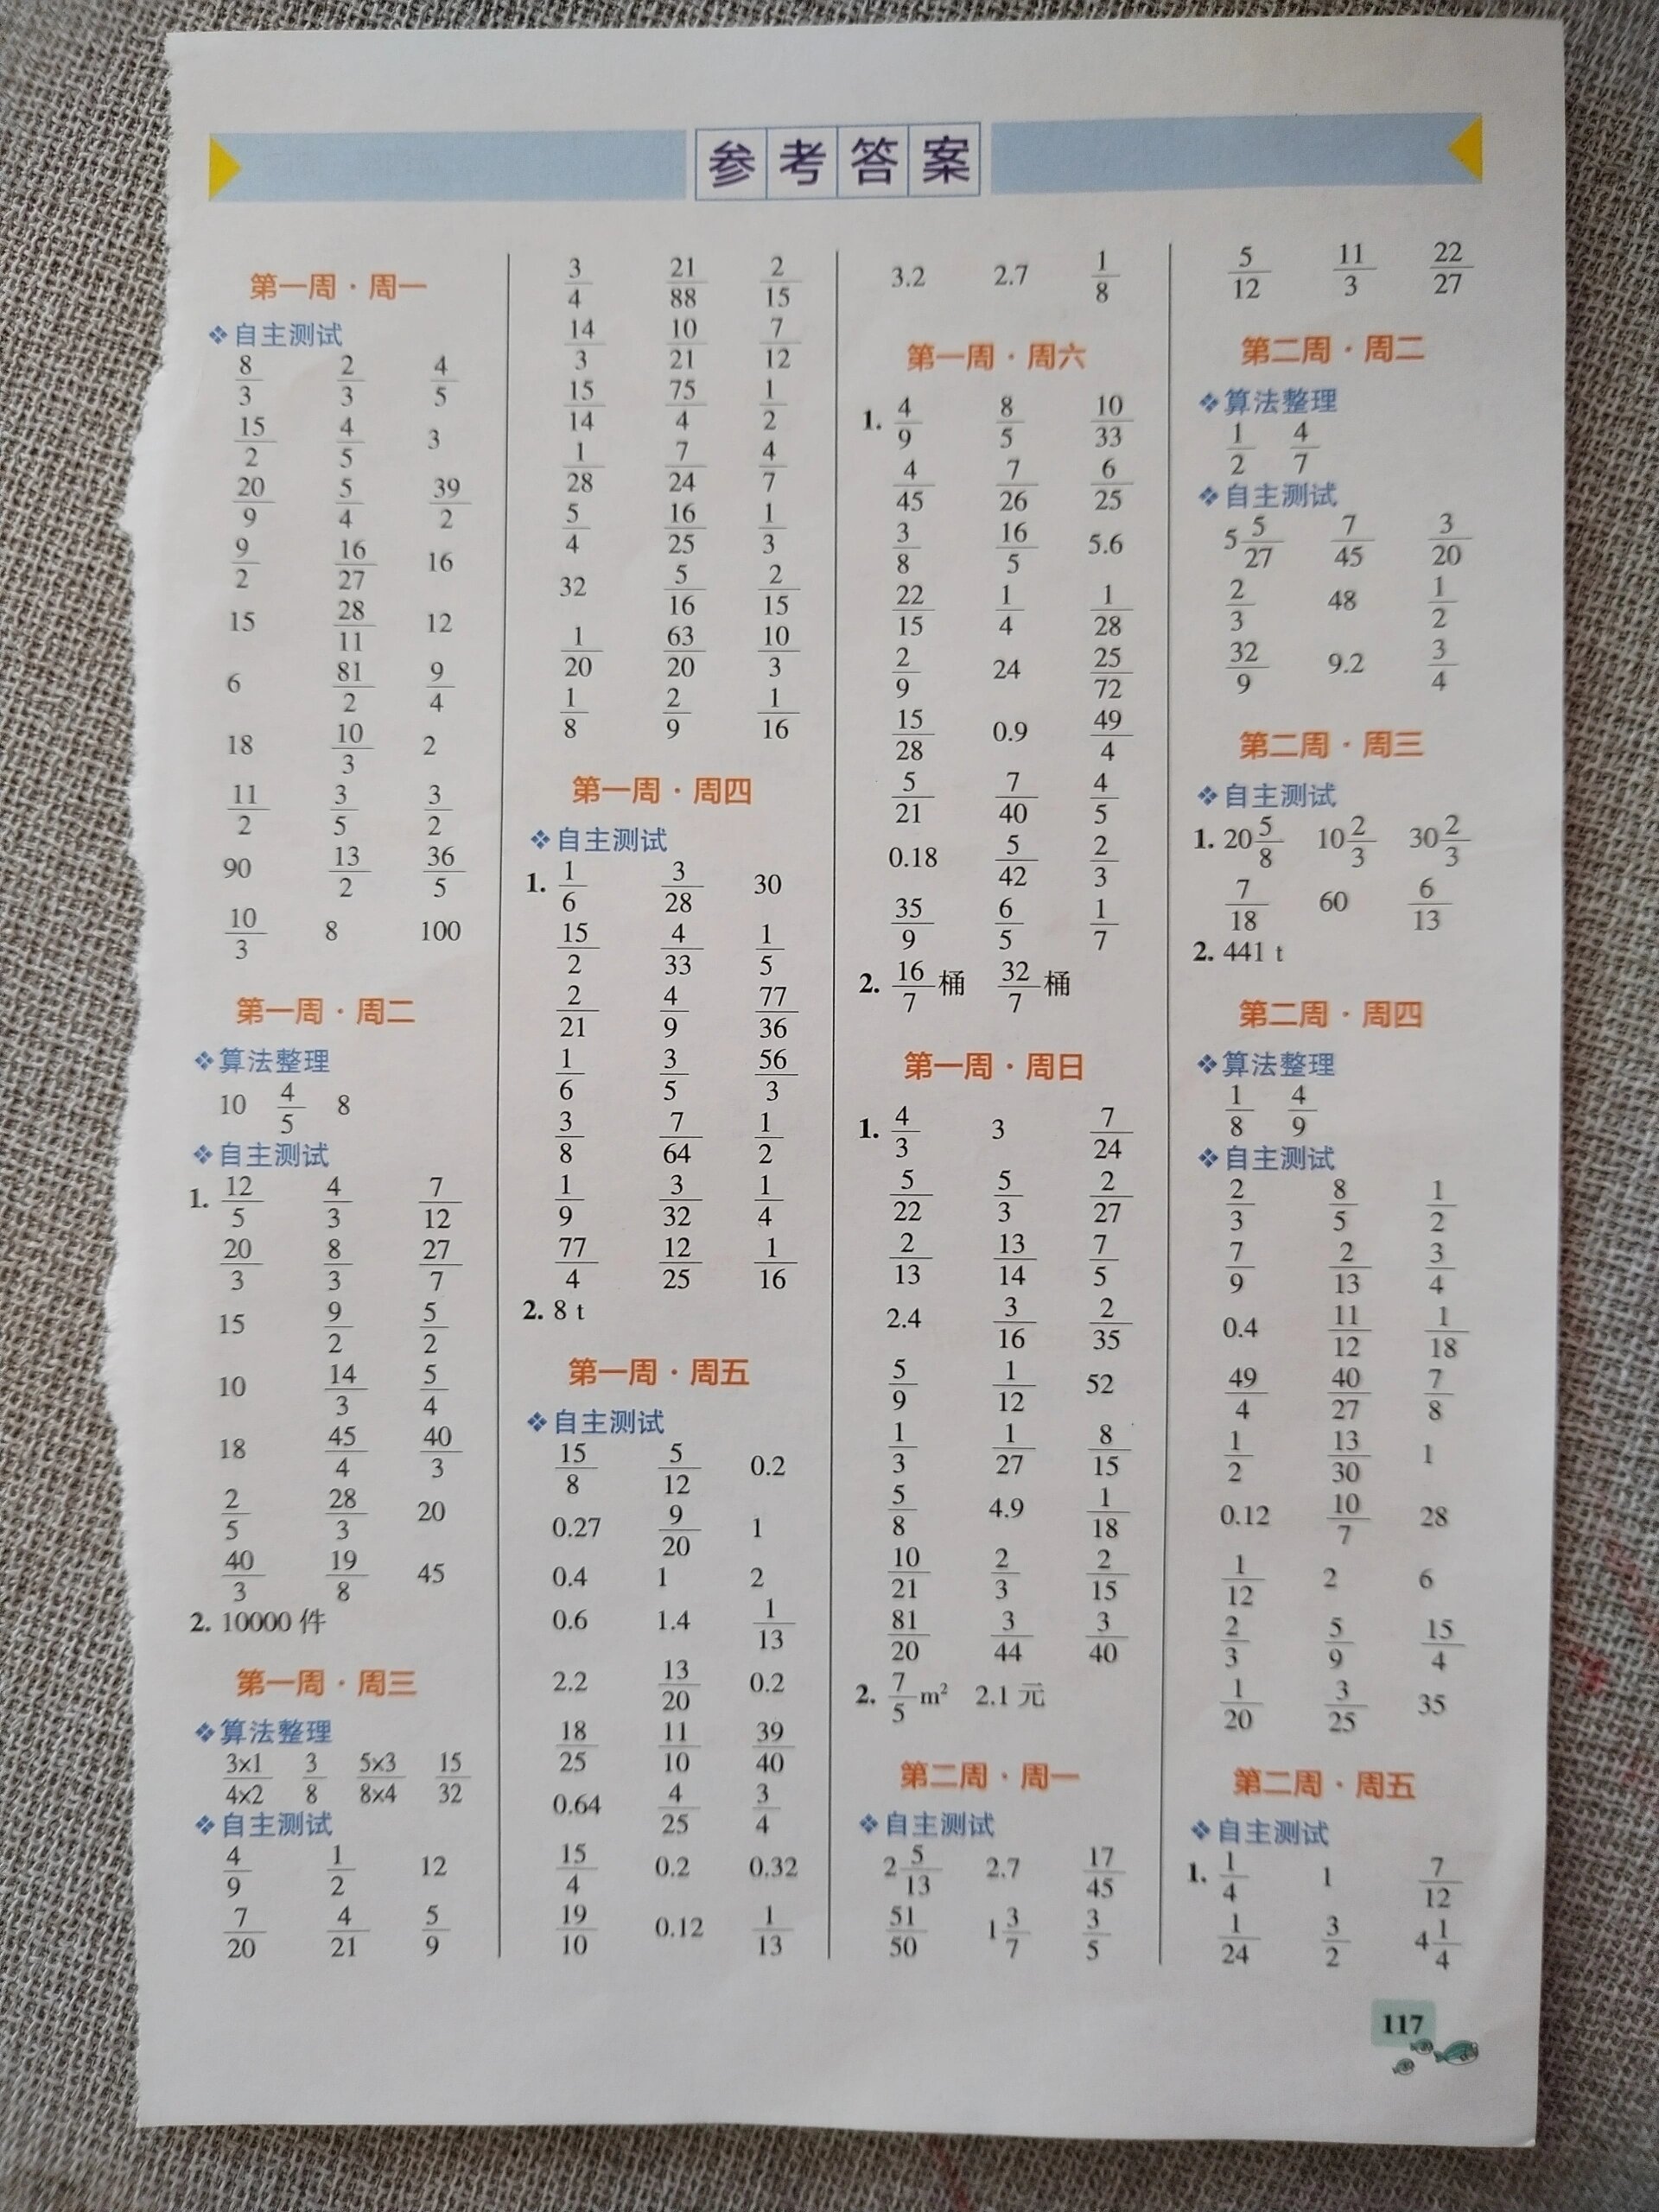 参考答案
第一周·周一
❖自主测试
8/3 2/3 4/5
15/2 4/5 3
20/9 5/4 39/2
9/2 16/27 16
15 28/11 12
6 81/2 9/4
18 10/3 2
11/2 3/5 3/2
90 13/2 36/5
10/3 8 100
第一周·周二
❖算法整理
10 4/5 8
❖自主测试
1. 12/5 4/3 7/12
20/3 8/3 27/7
15 9/2 5/2
10 14/3 5/4
18 45/4 40/3
2/5 28/3 20
40/3 19/8 45
2. 10000件
第一周·周三
❖算法整理
3×1/4×2 3/8 5×3/8×4 15/32
❖自主测试
4/9 1/2 12
7/20 4/21 5/9
3/4 21/88 2/15
14/3 10/21 7/12
15/14 75/4 1/2
1/28 7/24 4/7
5/4 16/25 1/3
32 5/16 2/15
1/20 63/20 10/3
1/8 2/9 1/16
第一周·周四
❖自主测试
1. 1/6 3/28 30
15/2 4/33 1/5
2/21 4/9 77/36
1/6 3/5 56/3
3/8 7/64 1/2
1/9 3/32 1/4
77/4 12/25 1/16
2. 8 t
第一周·周五
❖自主测试
15/8 5/12 0.2
0.27 9/20 1
0.4 1 2
0.6 1.4 1/13
2.2 13/20 0.2
18/25 11/10 39/40
0.64 4/25 3/4
15/4 0.2 0.32
19/10 0.12 1/13
3.2 2.7 1/8
第一周·周六
1. 4/9 8/5 10/33
4/45 7/26 6/25
3/8 16/5 5.6
22/15 1/4 1/28
2/9 24 25/72
15/28 0.9 49/4
5/21 7/40 4/5
0.18 5/42 2/3
35/9 6/5 1/7
2. 16/7桶 32/7桶
第一周·周日
1. 4/3 3 7/24
5/22 5/3 2/27
2/13 13/14 7/5
2.4 3/16 2/35
5/9 1/12 52
1/3 1/27 8/15
5/8 4.9 1/18
10/21 2/3 2/15
81/20 3/44 3/40
2. 7/5 m² 2.1元
第二周·周一
❖自主测试
2 5/13 2.7 17/45
51/50 1 3/7 3/5
5/12 11/3 22/27
第二周·周二
❖算法整理
1/2 4/7
❖自主测试
5 5/27 7/45 3/20
2/3 48 1/2
32/9 9.2 3/4
第二周·周三
❖自主测试
1. 20 5/8 10 2/3 30 2/3
7/18 60 6/13
2. 441 t
第二周·周四
❖算法整理
1/8 4/9
❖自主测试
2/3 8/5 1/2
7/9 2/13 3/4
0.4 11/12 1/18
49/4 40/27 7/8
1/2 13/30 1
0.12 10/7 28
1/12 2 6
2/3 5/9 15/4
1/20 3/25 35
第二周·周五
❖自主测试
1. 1/4 1 7/12
1/24 3/2 4 1/4
117